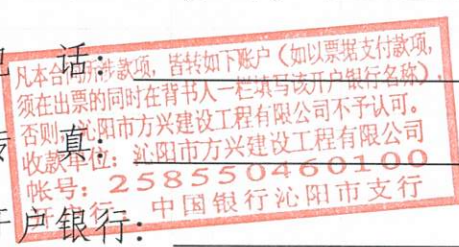 电话:
凡本合同所涉款项,皆转如下账户(如以票据支付款项,
须在出票的同时在背书人一栏填写该开户银行名称),
否则,沁阳市方兴建设工程有限公司不予认可。
传真:
收款单位:沁阳市方兴建设工程有限公司
帐号:258550460100
开户行:中国银行沁阳市支行
开户银行: